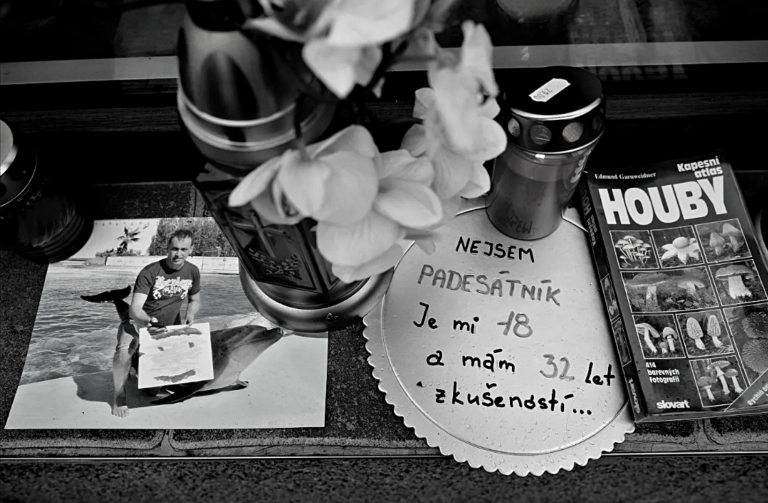 NEJSEM
PADESÁTNÍK
Je mi 18
a mám 32 let
zkušeností...
Edmund Garnweidner
Kapesní
atlas
HOUBY
414
barevných
fotografií
slovart